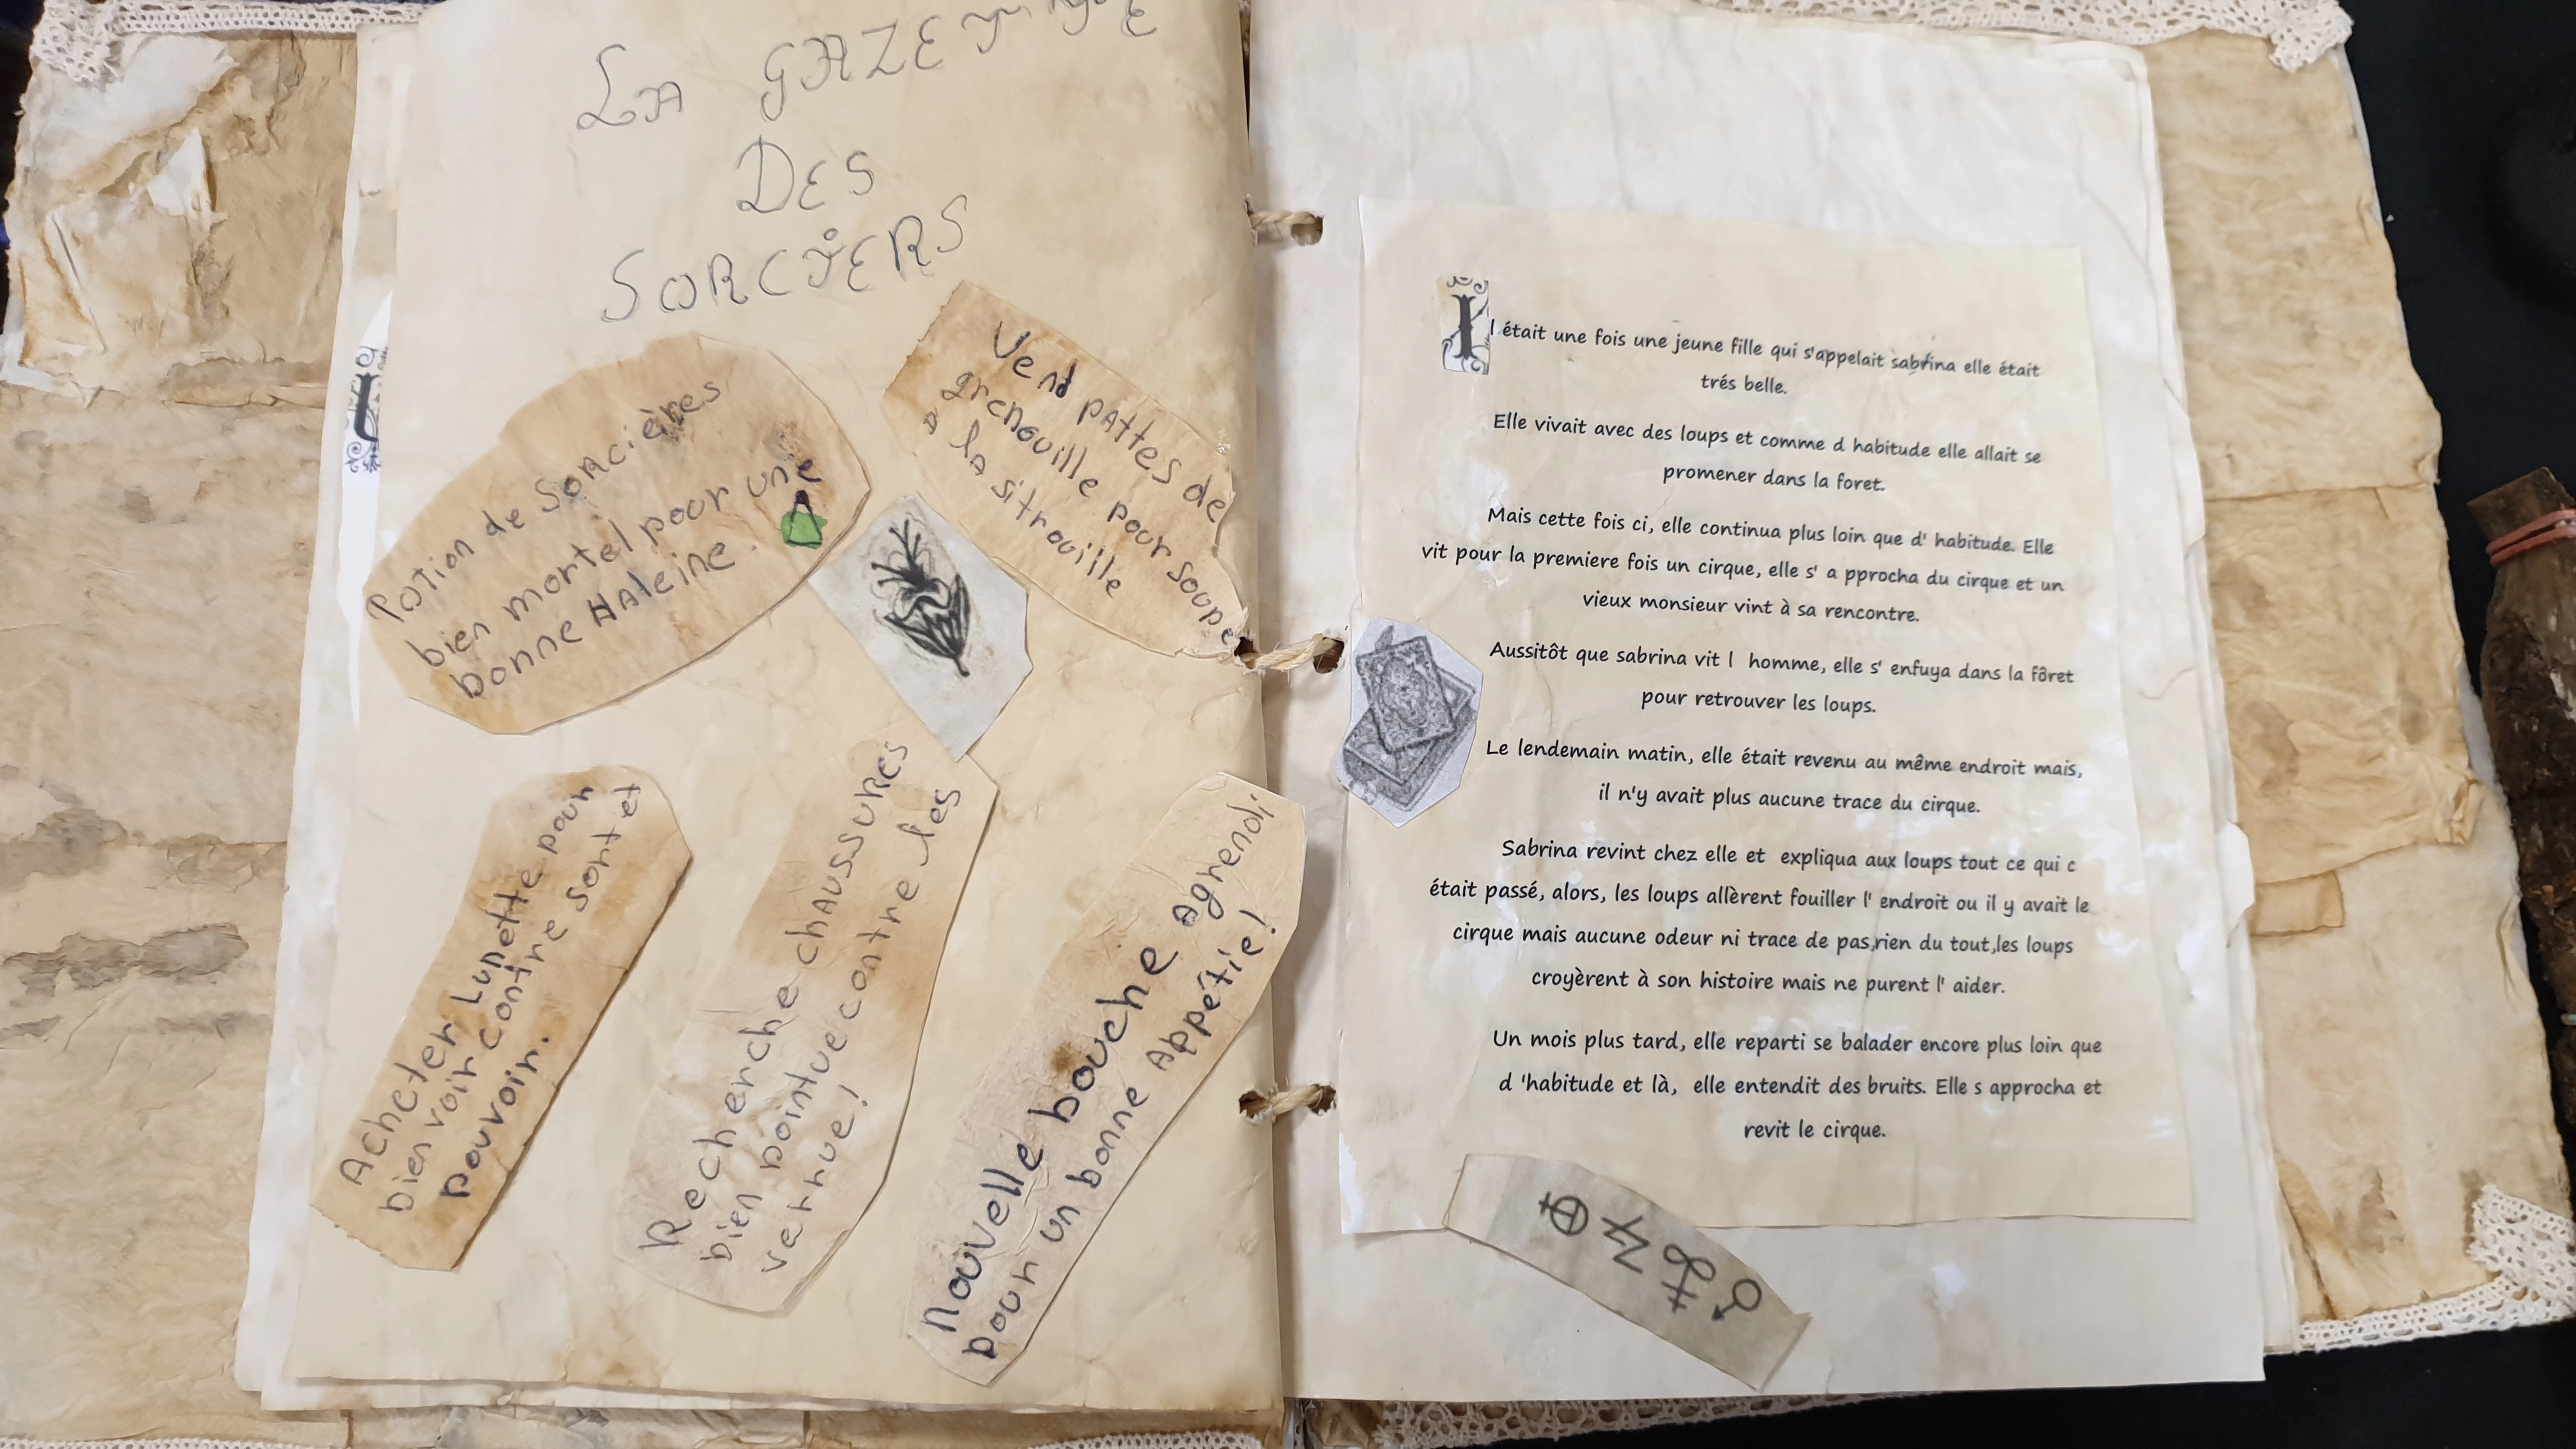 LA GAZETTE
DES
SORCIERS
Potion de Sorcières
bien mortel pour une
bonne HAleine.
Vend pAttes de
grenouille pour soupe
a la sitrouille
Acheter Lunette pour
bien voir contre sort et
pouvoir.
Recherche chAUssures
bien pointue contre les
verrue!
nouvelle bouche Agrendi
pour un bonne Appétie!
Il était une fois une jeune fille qui s'appelait sabrina elle était
trés belle.
Elle vivait avec des loups et comme d habitude elle allait se
promener dans la foret.
Mais cette fois ci, elle continua plus loin que d' habitude. Elle
vit pour la premiere fois un cirque, elle s' a pprocha du cirque et un
vieux monsieur vint à sa rencontre.
Aussitôt que sabrina vit l  homme, elle s' enfuya dans la fôret
pour retrouver les loups.
Le lendemain matin, elle était revenu au même endroit mais,
il n'y avait plus aucune trace du cirque.
Sabrina revint chez elle et  expliqua aux loups tout ce qui c
était passé, alors, les loups allèrent fouiller l' endroit ou il y avait le
cirque mais aucune odeur ni trace de pas,rien du tout,les loups
croyèrent à son histoire mais ne purent l' aider.
Un mois plus tard, elle reparti se balader encore plus loin que
d 'habitude et là,  elle entendit des bruits. Elle s approcha et
revit le cirque.